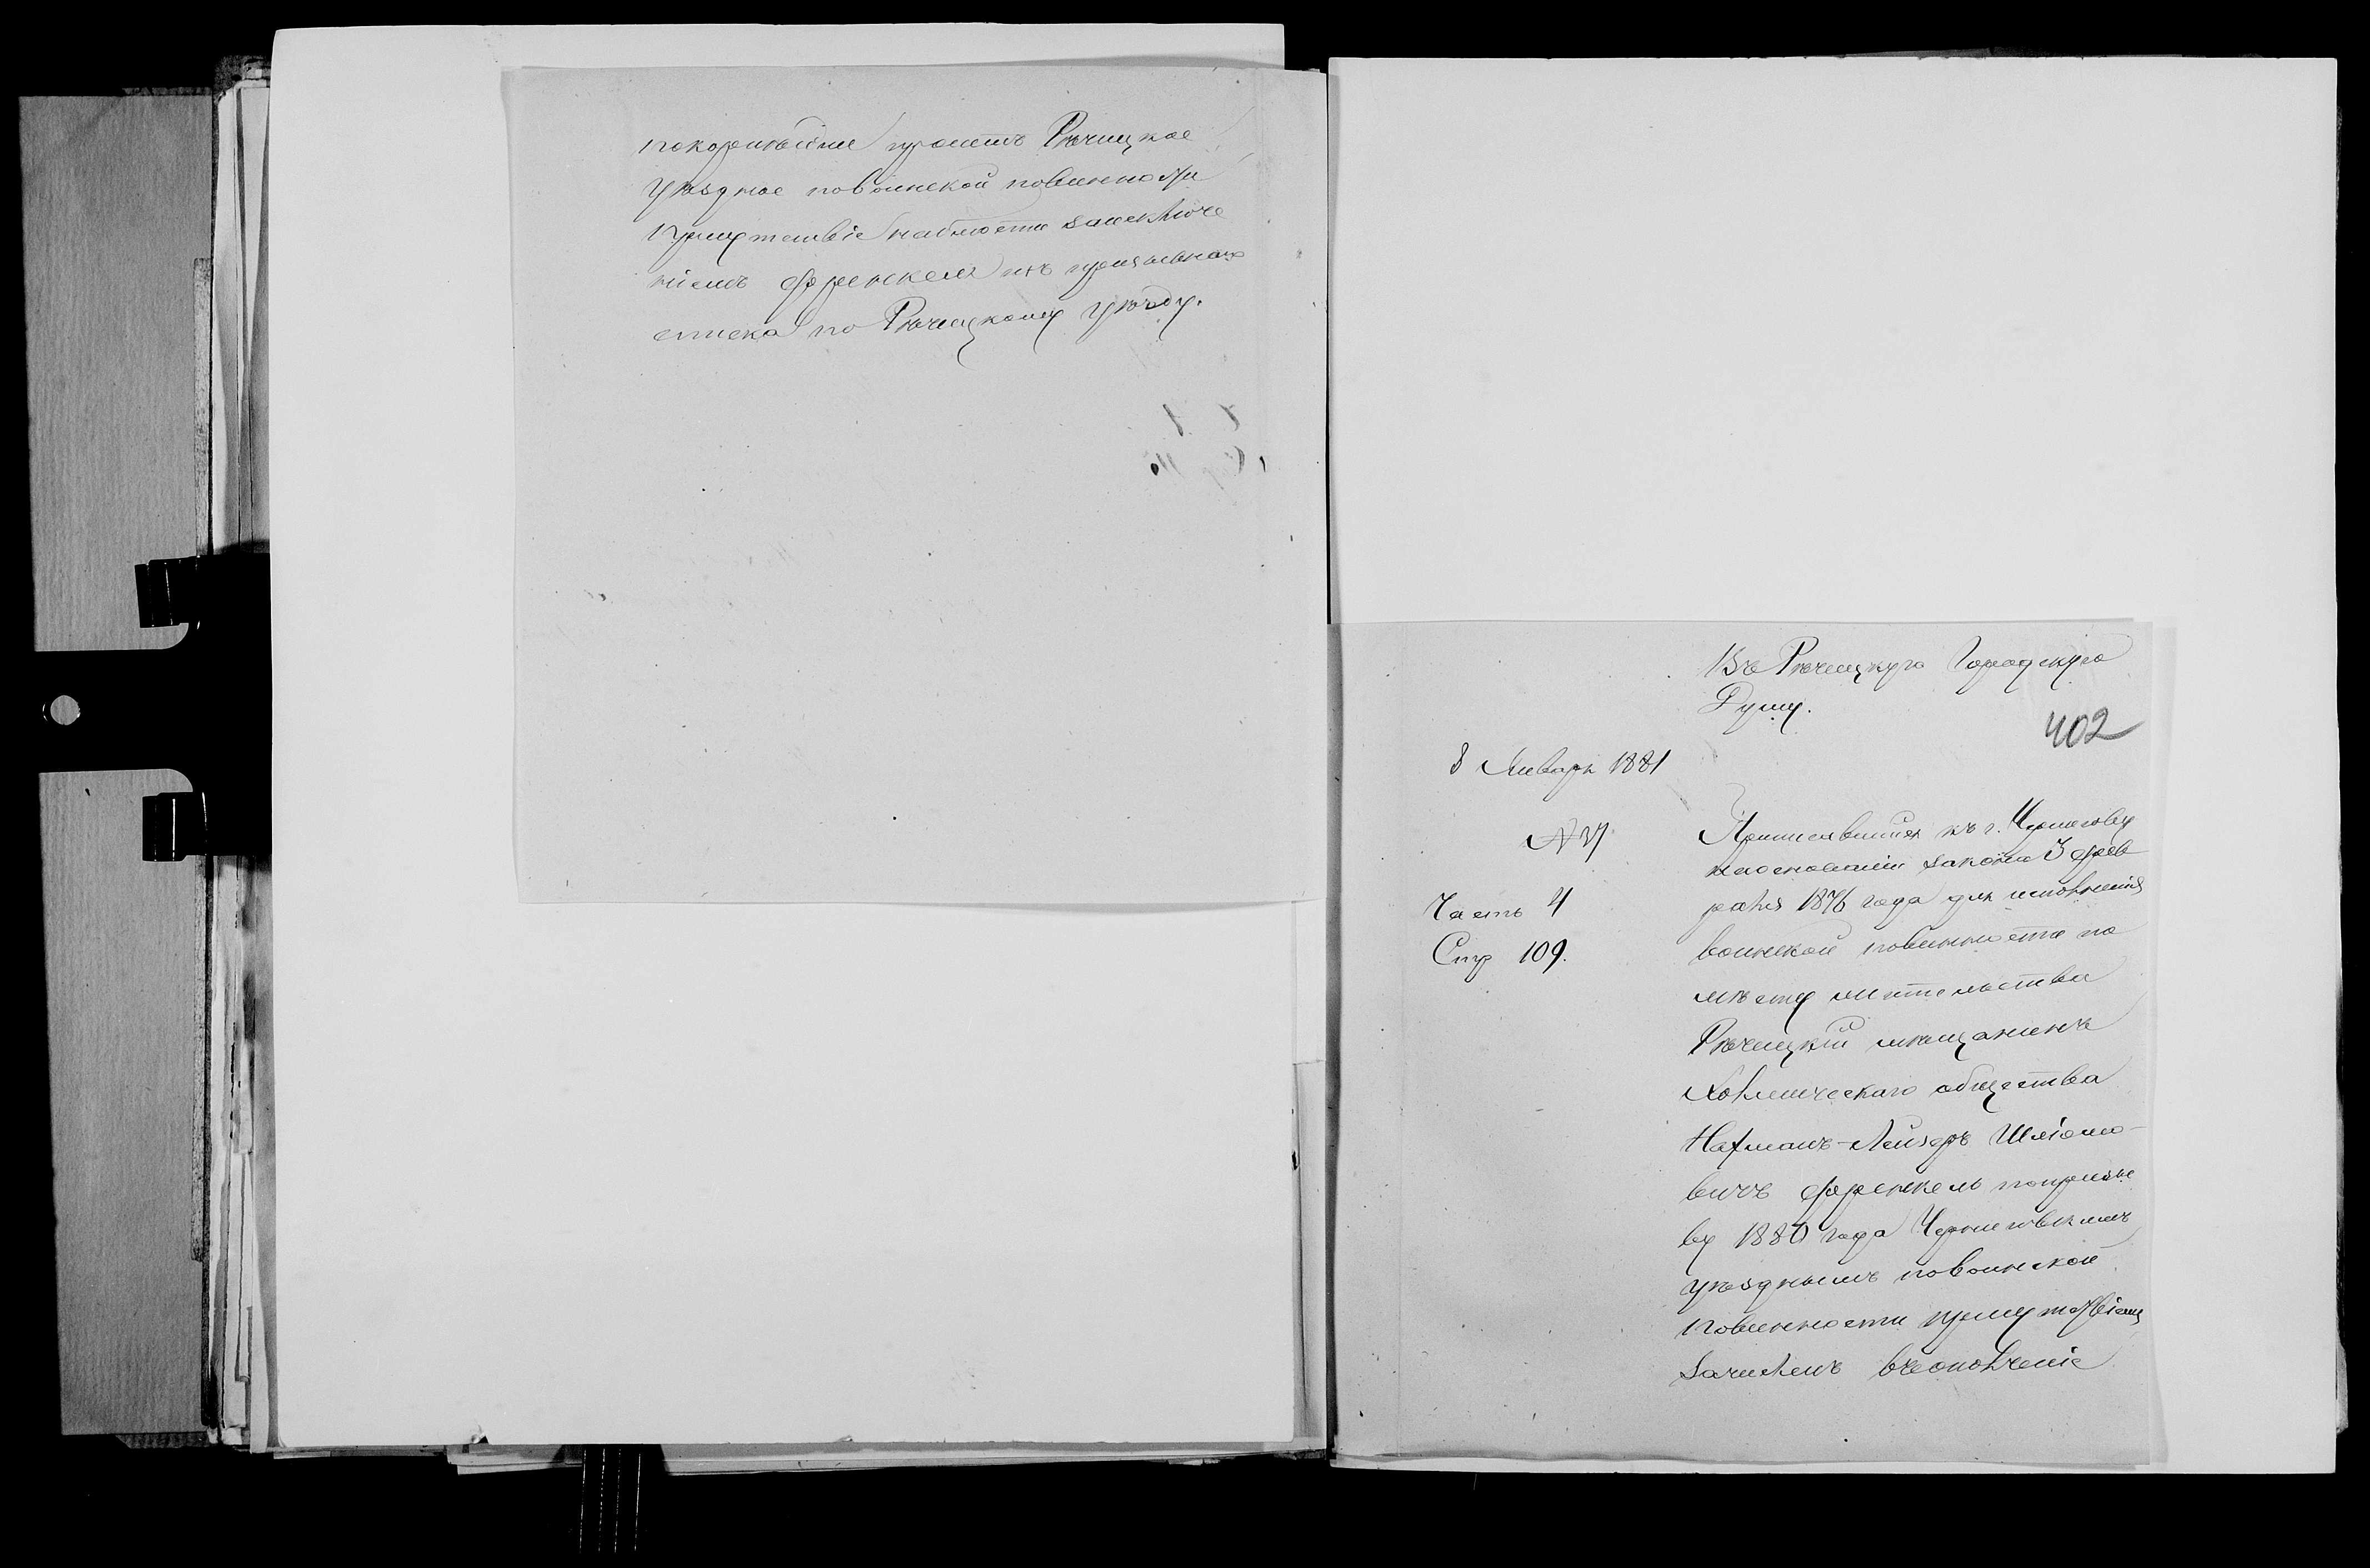 покорнѣйше проситъ Рѣчицкое
уѣздное повоинской повинности
присутствіе наблюсти заисключе
ніемъ Френкеля изъ призывнаго
списка по Рѣчицкому уѣзду.
Въ Рѣчицкую Городскую
Думу.
402
8 Января 1881
№ 37
Часть 4
Стр 109.
Приписавшійся къ г. Чернигову
наоснованіи закона 3 фев
раля 1876 года для исполненія
воинской повинности по
мѣсту жительства
Рѣчицкій мѣщанинъ
Холмическаго общества
Нахманъ-Лейзеръ Шліомо-
вичъ Френкель попризы
ву 1880 года Черниговскимъ
уѣзднымъ повоинской
повинности присутствіемъ
зачисленъ въополченіе